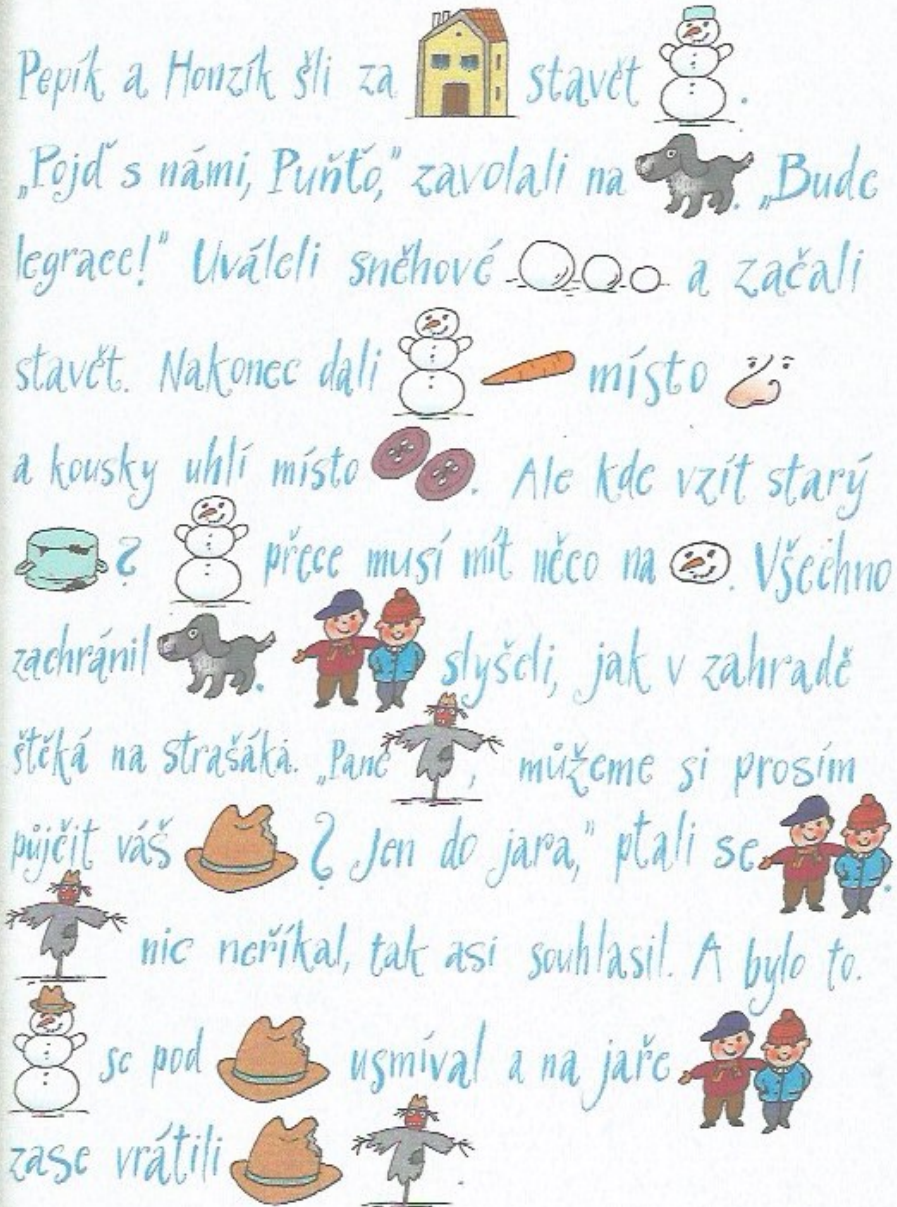 Pepík a Honzík šli za stavět .
„Pojď s námi, Puňťo,“ zavolali na . „Bude
legrace!“ Uváleli sněhové a začali
stavět. Nakonec dali místo
a kousky uhlí místo . Ale kde vzít starý
? přece musí mít něco na . Všechno
zachránil . slyšeli, jak v zahradě
štěká na strašáka. „Pane , můžeme si prosím
půjčit váš ? Jen do jara,“ ptali se .
nic neříkal, tak asi souhlasil. A bylo to.
se pod usmíval a na jaře
zase vrátili